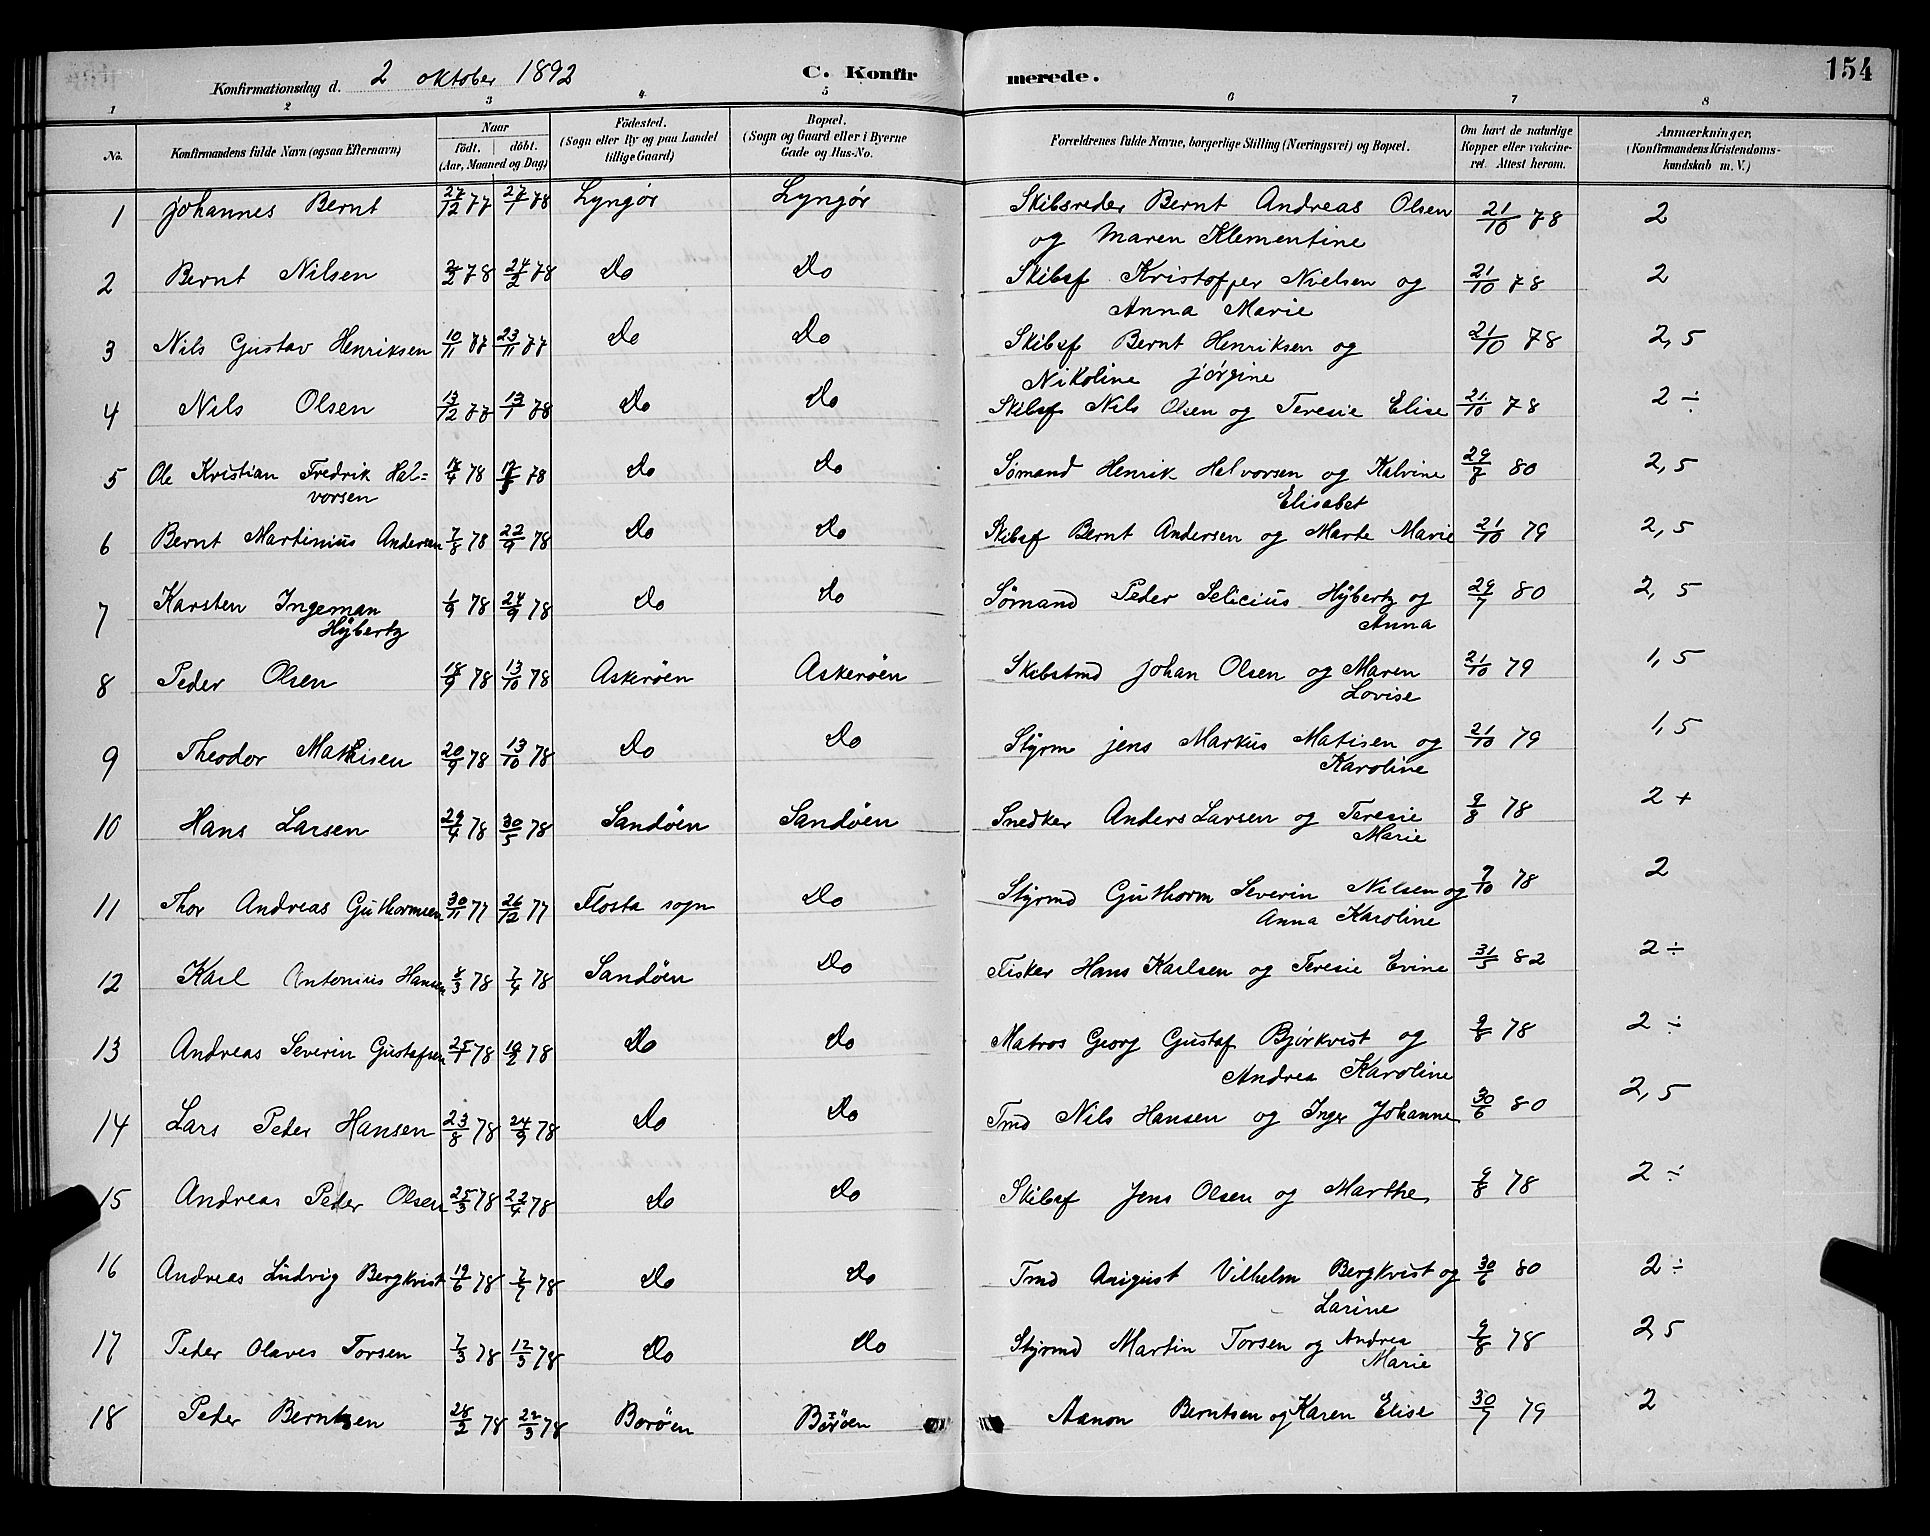 154
Konfirmationsdag d. 2 oktober 1892 C. Konfirmerede.
1 2 3 4 5 6 7 8
No. Konfirmandens fulde Navn (ogsaa Efternavn) Naar födt. döbt. (Aar, Maaned og Dag) Födested. (Sogn eller By og paa Landet tillige Gaard) Bopæl. (Sogn og Gaard eller i Byerne Gade og Hus-No. Forældrenes fulde Navne, borgerlige Stilling (Næringsvei) og Bopæl. Om havt de naturlige Kopper eller vakcineret. Attest herom. Anmærkninger, (Konfirmandens Kristendomskundskab m. V.)
1 Johannes Bernt 27/12 77 27/1 78 Lyngör Lyngör Skibsreder Bernt Andreas Olsen 21/10 78 2
og Maren Klementine
2 Bernt Nilsen 2/2 78 24/2 78 Do Do Skibsf Kristoffer Nielsen og 21/10 78 2
Anna Marie
3 Nils Gustav Henriksen 10/11 77 23/11 77 Do Do Skibsf Bernt Henriksen og 21/10 78 2,5
Nikoline Jörgine
4 Nils Olsen 13/12 77 13/1 78 Do Do Skibsf Nils Olsen og Teresie Elise 21/10 78 2 ÷
5 Ole Kristian Fredrik Hal= 78 78 Do Do Sømand Henrik Helvorsen og Kalvine 80 2,5
vorsen Elisabet
6 Bernt Martinius Andersen 7/8 78 22/9 78 Do Do Skibsf Bernt Andersen og Marte Marie 21/10 79 2,5
7 Karsten Ingeman 1/9 78 24/9 78 Do Do Sømand Peder Selicius Hÿbertz og 29/7 80 2,5
Hÿbertz Anna
8 Peder Olsen 18/9 78 13/10 78 Askeröen Askeröen Skibstmd Johan Olsen og Maren 21/10 79 1,5
Lovise
9 Theodor Mathisen 20/9 78 13/10 78 Do Do Styrm Jens Markus Matisen og 21/10 79 1,5
Karoline
10 Hans Larsen 29/4 78 30/5 78 Sandöen Sandöen Snedker Anders Larsen og Teresie 9/8 78 2 +
Marie
11 Thor Andreas Guthormsen 30/11 77 26/12 77 Flosta sogn Do Styrmd Guthorm Severin Nilsen og 78 2
Anna Karoline
12 Karl Antonius Hansen 8/3 78 7/4 78 Sandöen Do Fisker Hans Karlsen og Teresie Evine 31/5 82 2 ÷
13 Andreas Severin Gustafsen 25/1 78 78 Do Do Matros Georg Gustaf Bjørkvist og 9/8 78 2 ÷
Andrea Karoline
14 Lars Peter Hansen 23/8 78 24/9 78 Do Do Tmd Nils Hansen og Inger Johanne 30/6 80 2,5
15 Andreas Peder Olsen 25/3 78 22/4 78 Do Do Skibsf Jens Olsen og Marthe 9/8 78 2 ÷
16 Andreas Ludvig Bergkvist 19/6 78 7/7 78 Do Do Tmd August Vilhelm Bergkvist og 30/6 80 2 ÷
Larine
17 Peder Olaves Torsen 7/3 78 12/3 78 Do Do Styrmd Martin Torsen og Andrea 9/8 78 2,5
Marie
18 Peder Berntsen 28/2 78 22/3 78 Boröen Boröen Aanon Berntsen og Karen Elise 30/7 79 2